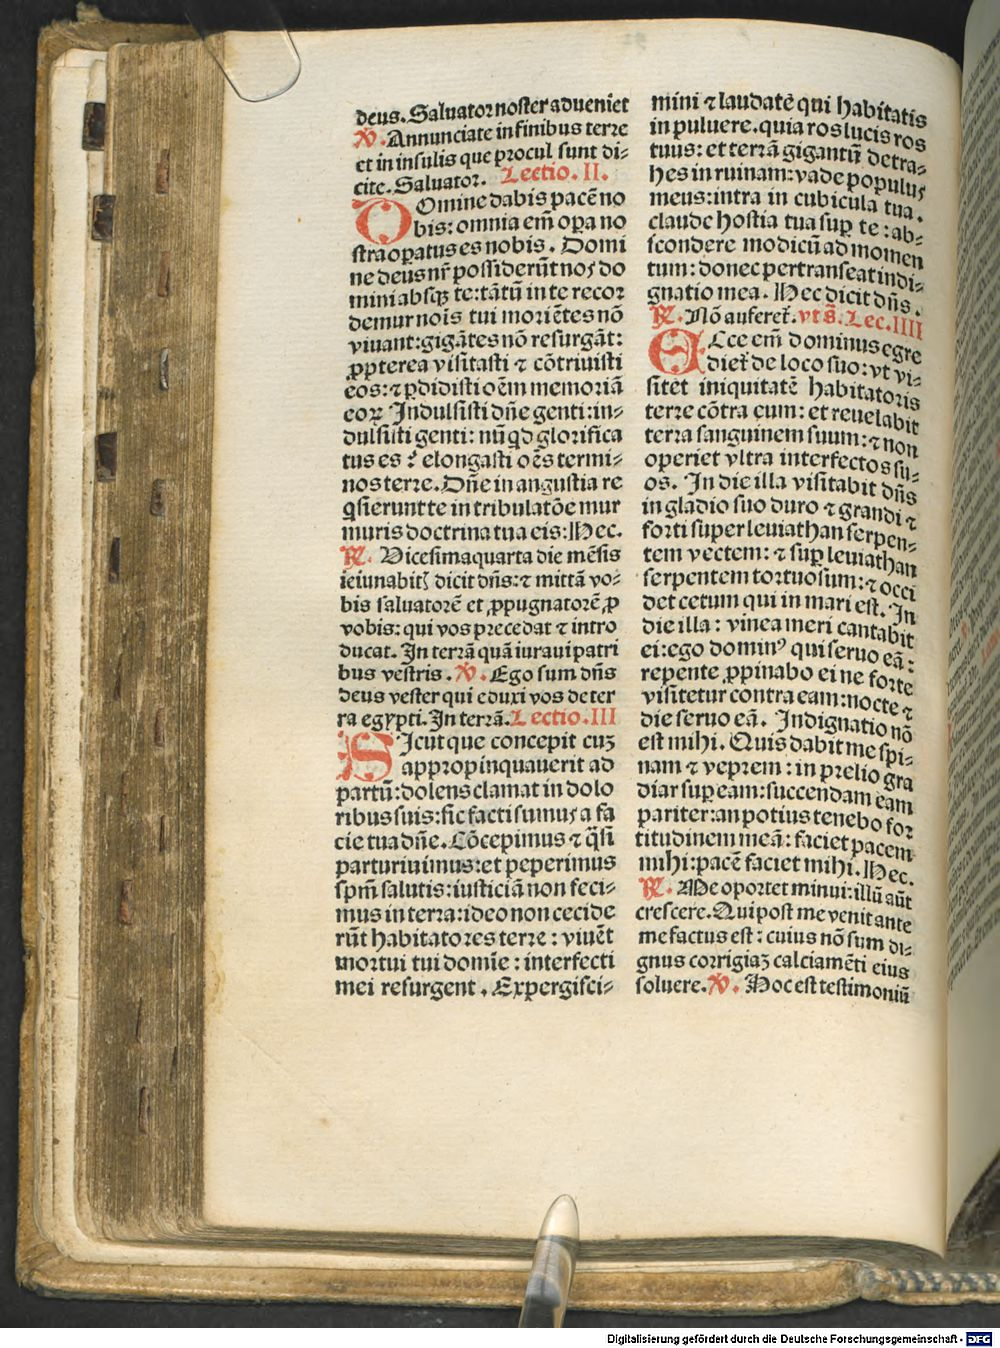 deus. Saluator noster adueniet
℣. Annunciate in finibus terre
et in insulis que procul sunt di⸗
cite. Saluator. Lectio. II.
DOmine dabis pacē no
bis: omnia em̄ oꝑa no
stra oꝑatus es nobis. Domi
ne deus nr̄ possiderūt nos do
mini absqꝫ te: tātū in te recor
demur nois tui moriētes nō
viuant: gigātes nō resurgāt:
ꝓpterea visitasti ⁊ cōtriuisti
eos: ⁊ ꝑdidisti oēm memoriā
eoꝝ Indulsisti dn̄e genti: in⸗
dulsisti genti: nūqd glorifica
tus es ⁊ elongasti oēs termi⸗
nos terre. Dn̄e in angustia re
q̄sierunt te in tribulatōe mur
muris doctrina tua eis: Hec.
℟. Vicesimaquarta die mēsis
ieiunabitꝭ dicit dn̄s: ⁊ mittā vo⸗
bis saluatorē et ꝓpugnatorē ꝓ
vobis: qui vos precedat ⁊ intro
ducat. In terrā quā iuraui patri
bus vestris. ℣. Ego sum dn̄s
deus vester qui eduxi vos de ter
ra egypti. In terrā. Lectio. III
SIcut que concepit cuꝫ
appropinquauerit ad
partū: dolens clamat in dolo
ribus suis: sic facti sumus a fa
cie tua dn̄e. Cōcepimus ⁊ q̄si
parturiuimus: et peperimus
spm̄ salutis: iusticiā non feci⸗
mus in terra: ideo non cecide
rūt habitatores terre: viuēt
mortui tui domīe: interfecti
mei resurgent. Expergisci⸗
mini ⁊ laudatē qui habitatis
in puluere. quia ros lucis ros
tuus: et terrā gigantū detra⸗
hes in ruinam: vade populus
meus: intra in cubicula tua.
claude hostia tua suꝑ te: ab⸗
scondere modicū ad momen
tum: donec pertranseat indi⸗
gnatio mea. Hec dicit dn̄s.
℟. Nō auferet̄. vt s̄. Lec. IIII
ECce em̄ dominus egre
diet̄ de loco suo: vt vi⸗
sitet iniquitatē habitatoris
terre cōtra eum: et reuelabit
terra sanguinem suum: ⁊ non
operiet vltra interfectos su⸗
os. In die illa visitabit dn̄s
in gladio suo duro ⁊ grandi ⁊
forti super leuiathan serpen⸗
tem vectem: ⁊ suꝑ leuiathan
serpentem tortuosum: ⁊ occi
det cetum qui in mari est. In
die illa: vinea meri cantabit
ei: ego dominꝰ qui seruo eā:
repente ꝓpinabo ei ne forte
visitetur contra eam: nocte ⁊
die seruo eā. Indignatio nō
est mihi. Quis dabit me spi⸗
nam ⁊ veprem: in prelio gra
diar suꝑ eam: succendam eam
pariter: an potius tenebo for
titudinem meā: faciet pacem
mihi: pacē faciet mihi. Hec.
℟. Me oportet minui: illū aūt
crescere. Qui post me venit ante
me factus est: cuius nō sum di⸗
gnus corrigiaꝫ calciamēti eius
soluere. ℣. Hoc est testimoniū
Digitalisierung gefördert durch die Deutsche Forschungsgemeinschaft - DFG